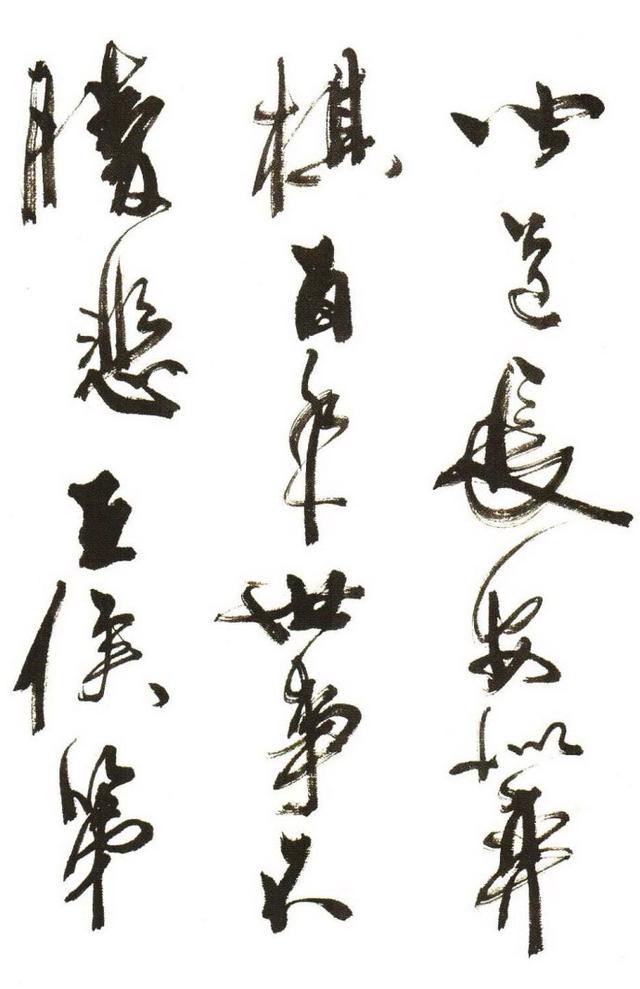 闻道长安似弈
棋百年世事不
勝悲王侯第